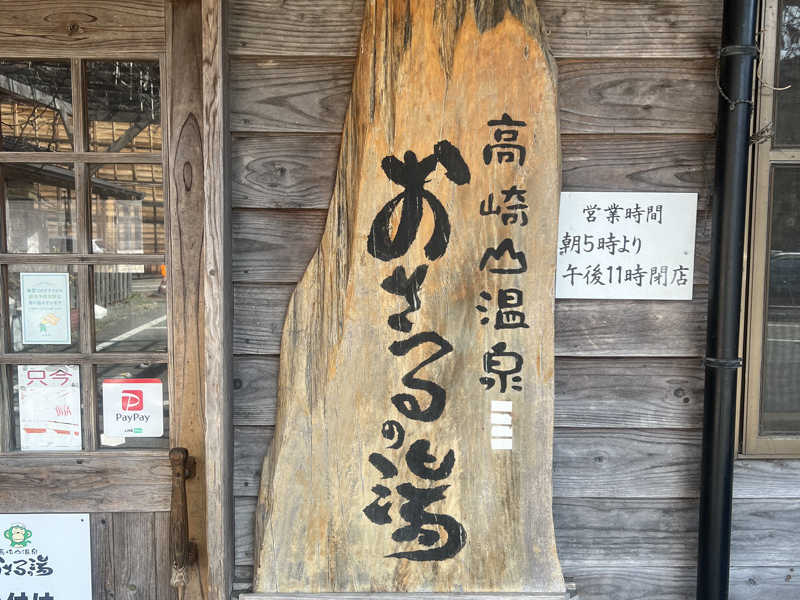 高崎山温泉
おさるの湯
営業時間
朝5時より
午後11時閉店
只今
PayPay
高崎山温泉
おさる湯